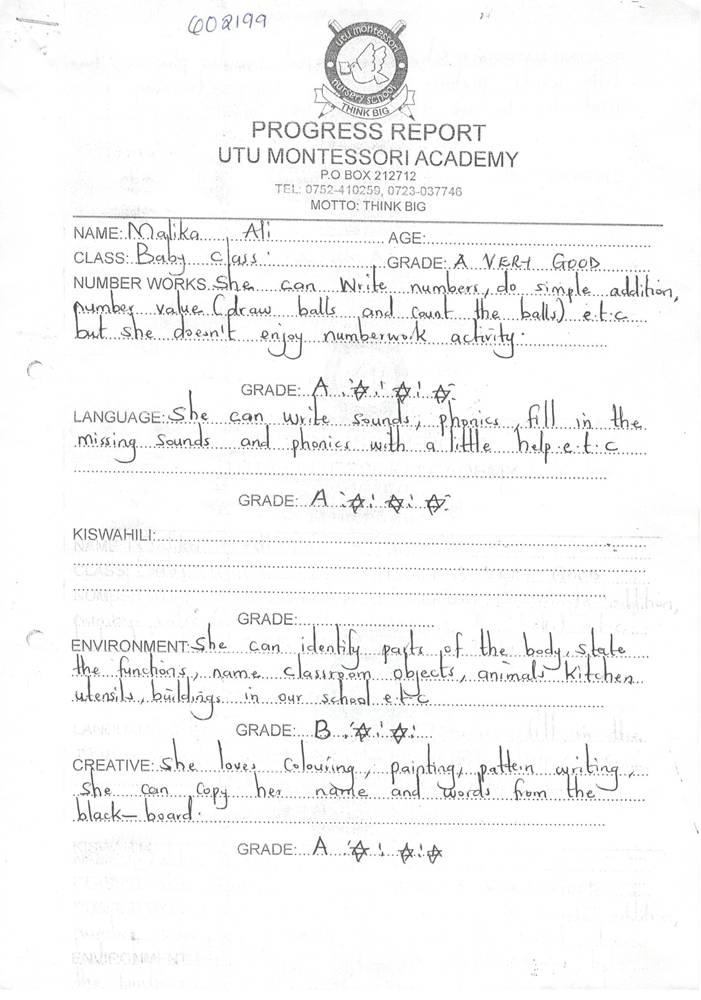 602199
utu montessori
nursery school
THINK BIG
PROGRESS REPORT
UTU MONTESSORI ACADEMY
P.O BOX 212712
TEL: 0752-410259, 0723-037746
MOTTO: THINK BIG
NAME: Malika Ali AGE:
CLASS: Baby class. GRADE: A VERY GOOD
NUMBER WORKS. She can Write numbers, do simple addition,
number value (draw balls and count the balls) e.t.c
but she doesn't enjoy numberwork activity.
GRADE: A
LANGUAGE: She can write sounds, phonics, fill in the
missing sounds and phonics with a little help e.t.c
GRADE: A
KISWAHILI:
GRADE:
ENVIRONMENT: She can identify parts of the body, state
the functions, name classroom objects, animals Kitchen
utensils, buildings in our school e.t.c
GRADE: B
CREATIVE: She loves Colouring, painting, pattern writing,
She can copy her name and words from the
black-board.
GRADE: A